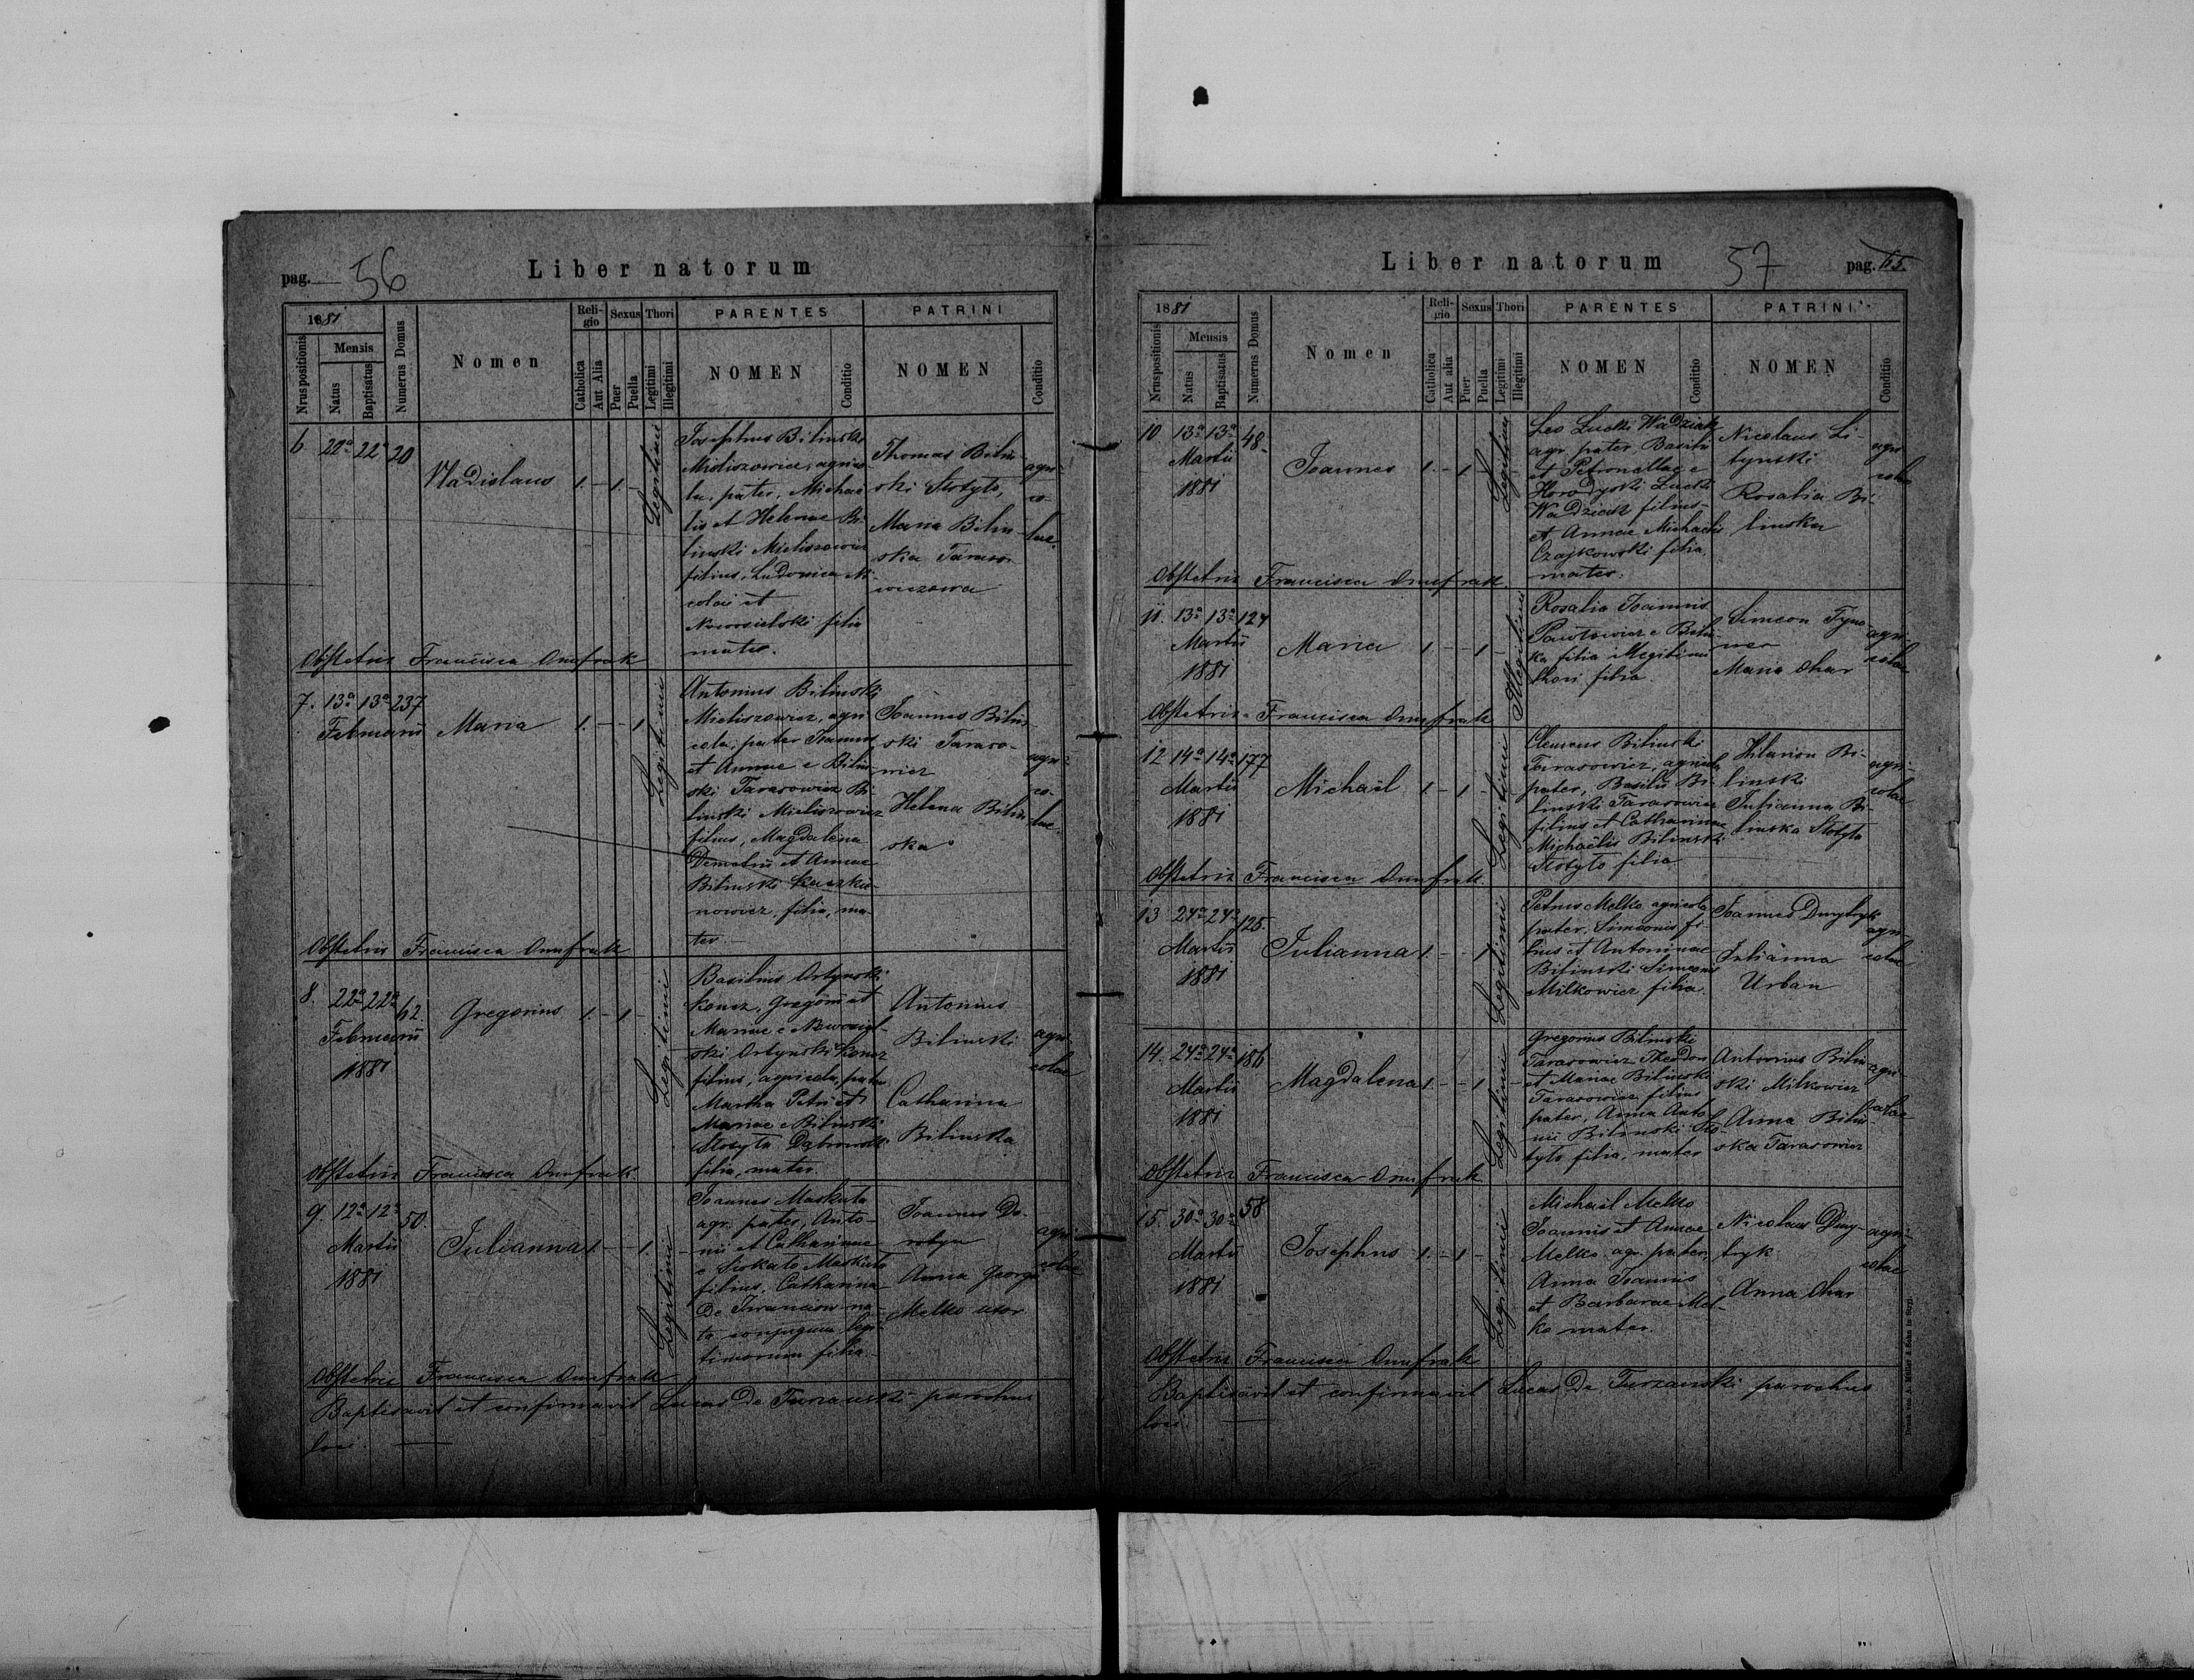 pag. 56
Liber natorum
1881
Nrus positionis
Mensis
Natus
Baptisatus
Numerus Domus
Nomen
Religio
Catholica
Aut Alia
Sexus
Puer
Puella
Thori
Legitimi
Illegitimi
PARENTES
NOMEN
Conditio
PATRINI
NOMEN
Conditio
6 22a 22a 20
Wladislaus 1. - 1. -
Legitimi
Josephus Bilinski
Mieliszowicz, agrico-
la, pater, Michae-
lis et Helenae Bi-
linski Mieliszowicz
filius, Ludovica Ni-
colai et
Nowosielski filia
mater.
Thomas Bilin-
ski Stotyto,
Maria Bilin-
ska Taraso-
wiczowa
agri-
co-
lae.
Obstetrix Francisca Onufrak
7. 13a 13a 237
Februarii
Maria 1. - - 1
Legitimi
Antonius Bilinski
Mieliszowicz, agri-
cola, pater Joannis
et Annae e Bilin-
ski Tarasowicz Bi-
linski Mieliszowicz
filius, Magdalena
Demetrii et Annae
Bilinski
nowicz filia, ma-
ter
Joannes Bilin-
ski Taraso-
wicz
Helena Bilin-
ska
agri-
co-
lae.
Obstetrix Francisca Onufrak
8. 22a 22a 62.
Februarii
1881
Gregorius 1. - 1 -
Legitimi
Basilius Ortynski
Koncz, Gregorii et
Mariae e Nowosiel-
ski Ortynski Koncz
filius, agricola, pater
Martha Petri et
Mariae e Bilinski
Stotyta Dąbrowski
filia, mater.
Antonius
Bilinski
Catharina
Bilinska
agri-
colae
Obstetrix Francisca Onufrak
9. 12a 12a 50.
Martii
1881
Julianna 1. - - 1. -
Legitimi
Joannes Maskuta
agr. pater, Anto-
nii et Catharinae
e Siokato Maskuta
filius, Catharina
de Iwanciow na-
ta conjugum legi-
timorum filia.
Joannes Do-
rotyn
Anna Georgii
Melko uxor
agri-
colae
Obstetrix Francisca Onufrak
Baptisavit et confirmavit Lucas de Turzanski parochus
loci.
Liber natorum
57
pag. 55.
1881
Nrus positionis
Mensis
Natus
Baptisatus
Numerus Domus
Nomen
Religio
Catholica
Aut alia
Sexus
Puer
Puella
Thori
Legitimi
Illegitimi
PARENTES
NOMEN
Conditio
PATRINI
NOMEN
Conditio
10 13a 13a 48.
Martii
1881
Joannes 1. - 1
Legitimi
Leo Lucki Wadziak
agr. pater Basilii
et Petronellae e
Horodyski Lucki
Wadziak filius
et Annae Michaelis
Czajkowski filia
mater.
Nicolaus Li-
tynski
Rosalia Bi-
linska
agri-
colae
Obstetrix Francisca Onufrak
11. 13a 13a 124
Martii
1881
Maria 1 - - 1
Illegitimi
Rosalia Joannis
Pawlowicz e Bilin-
ka filia illegitimi
thori filia.
Simeon Tym-
Maria Char
agri-
colae
Obstetrix Francisca Onufrak
12 14a 14a 177
Martii
1881
Michaël 1. - 1 -
Legitimi
Clemens Bilinski
Tarasowicz, agricola
pater, Basilii Bi-
linski Tarasowicz
filius et Catharinae
Michaelis Bilinski
Stotyto filia
Hilarion Bi-
linski
Julianna Bi-
linska Stotyta
agri-
colae
Obstetrix Francisca Onufrak
13 24a 24a 125.
Martii
1881
Julianna 1. - - 1
Legitimi
Petrus Melko agricola
pater, Simeonis fi-
lius et Antoninae
Bilinski Simeonis
Milkowicz filia.
Joannes Dmytryk
Julianna
Urban
agri-
colae
14. 24a 24a 186
Martii
1881
Magdalena 1. - - 1 -
Legitimi
Gregorius Bilinski
Tarasowicz Theodori
et Mariae Bilinski
Tarasowicz filius
pater, Anna Anto-
nii Bilinski Sto-
tyto filia, mater
Antonius Bilin-
ski Milkowicz
Anna Bilin-
ska Tarasowicz
agri-
colae
Obstetrix Francisca Onufrak
15. 30a 30a 58
Martii
1881
Josephus 1. - 1 -
Legitimi
Michael Melko
Joannis et Annae
Melko agr. pater,
Anna Joannis
et Barbarae Mel-
ko mater.
Nicolaus Dmy-
tryk
Anna Char
agri-
colae
Obstetrix Francisca Onufrak
Baptisavit et confirmavit Lucas de Turzanski parochus
loci.
Druck von A. Müller & Sohn in Stryj.